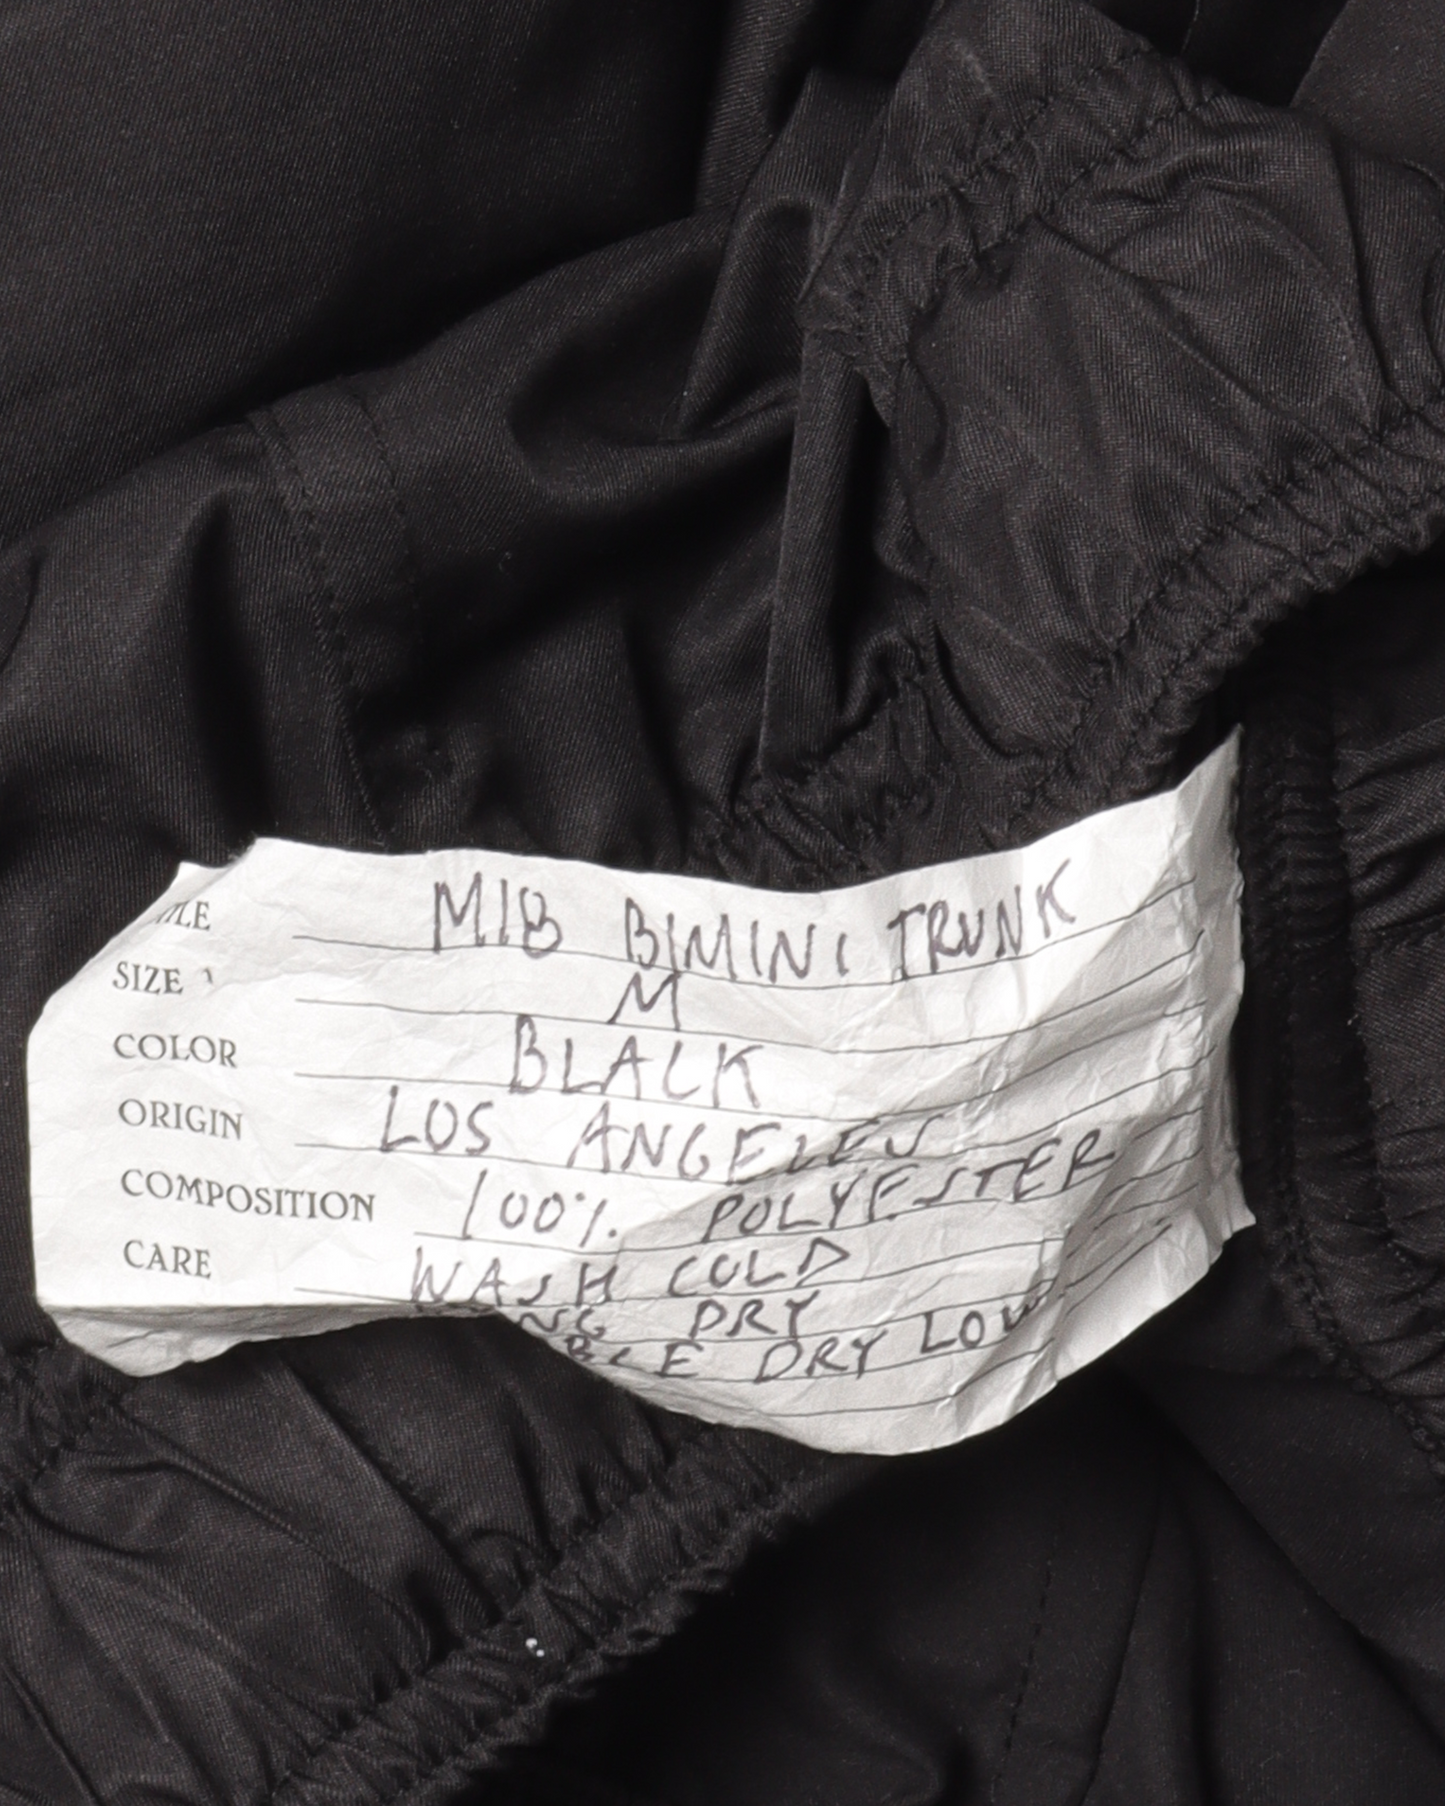 MIB BIMINI TRUNK
SIZE M
COLOR BLACK
ORIGIN LOS ANGELES
COMPOSITION 100% POLYESTER
CARE WASH COLD
DRY
DRY LOW